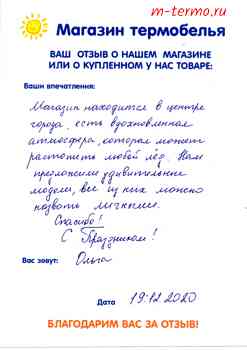 m-termo.ru
Магазин термобелья
ВАШ ОТЗЫВ О НАШЕМ МАГАЗИНЕ
ИЛИ О КУПЛЕННОМ У НАС ТОВАРЕ:
Ваши впечатления:
Магазин находится в центре
города, есть вдохновленная
атмосфера, которая может
растопить любой лёд. Нам
предложили удивительные
модели, все из них можно
назвать легкими.
Спасибо!
С Праздником!
Вас зовут: Ольга
Дата 19.12.2020
БЛАГОДАРИМ ВАС ЗА ОТЗЫВ!